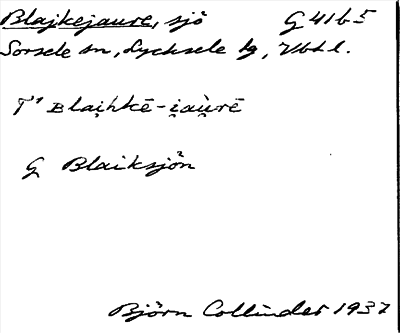 Blajkejaure, sjö G 41 b 5
Sorsele sn, Lycksele lg, Vbtl.
T' Blai̯hkē-i̯au̯rē
G Blaiksjön
Björn Collinder 1937